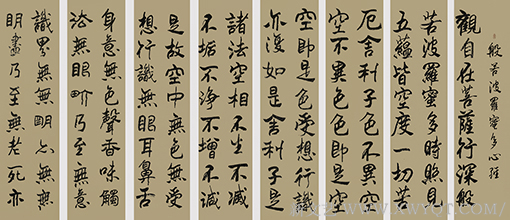 般若波羅蜜多心經
觀自在菩薩行深般
若波羅蜜多時照見
五蘊皆空度一切苦
厄舍利子色不異空
空不異色色即是
空即是色受想行識
亦復如是舍利子是
諸法空相不生不滅
不垢不淨不增不減
是故空中無色無受
想行識無眼耳鼻舌
身意無色聲香味觸
法無眼界乃至無意
識界無無明亦無無
明盡乃至無老死亦